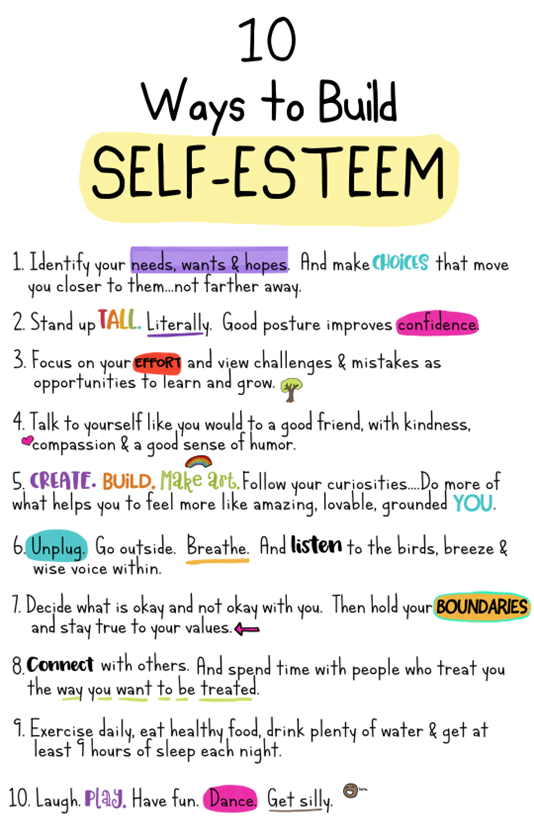 10
Ways to Build
SELF-ESTEEM
1. Identify your needs, wants & hopes. And make CHOICES that move
you closer to them...not farther away.
2. Stand up TALL. Literally. Good posture improves confidence.
3. Focus on your EFFORT and view challenges & mistakes as
opportunities to learn and grow.
4. Talk to yourself like you would to a good friend, with kindness,
compassion & a good sense of humor.
5. CREATE. BUILD. Make art. Follow your curiosities....Do more of
what helps you to feel more like amazing, lovable, grounded YOU.
6. Unplug. Go outside. Breathe. And listen to the birds, breeze &
wise voice within.
7. Decide what is okay and not okay with you. Then hold your BOUNDARIES
and stay true to your values.
8. Connect with others. And spend time with people who treat you
the way you want to be treated.
9. Exercise daily, eat healthy food, drink plenty of water & get at
least 9 hours of sleep each night.
10. Laugh. PLAY. Have fun. Dance. Get silly.